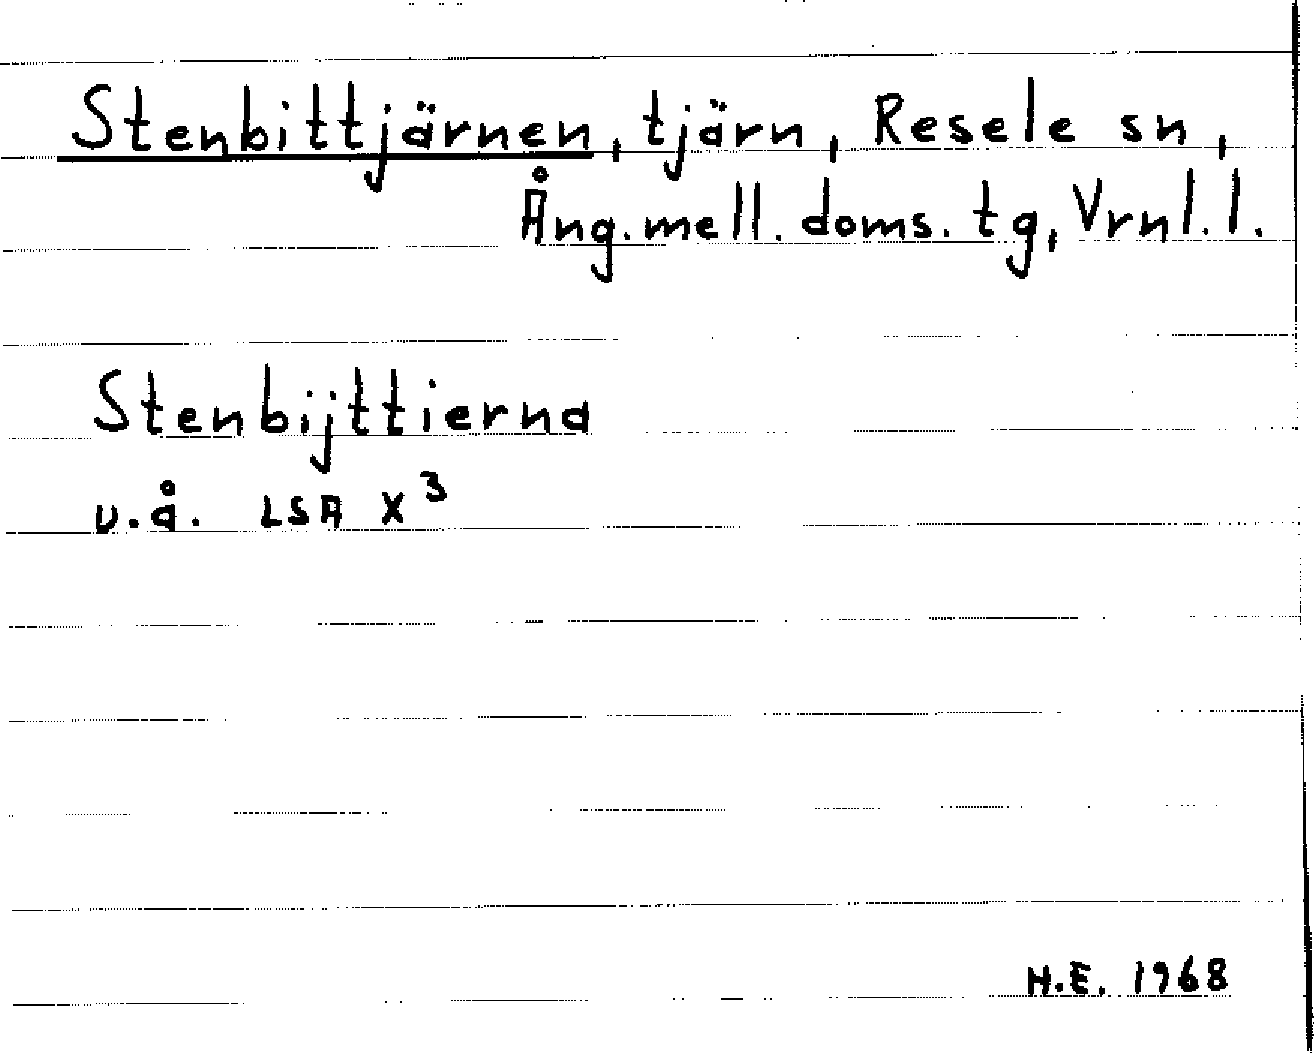 Stenbittjärnen, tjärn, Resele sn,
Ång.mell. doms. tg, Vrnl.l.
Stenbijttierna
u.å. LSA X³
H.E. 1968